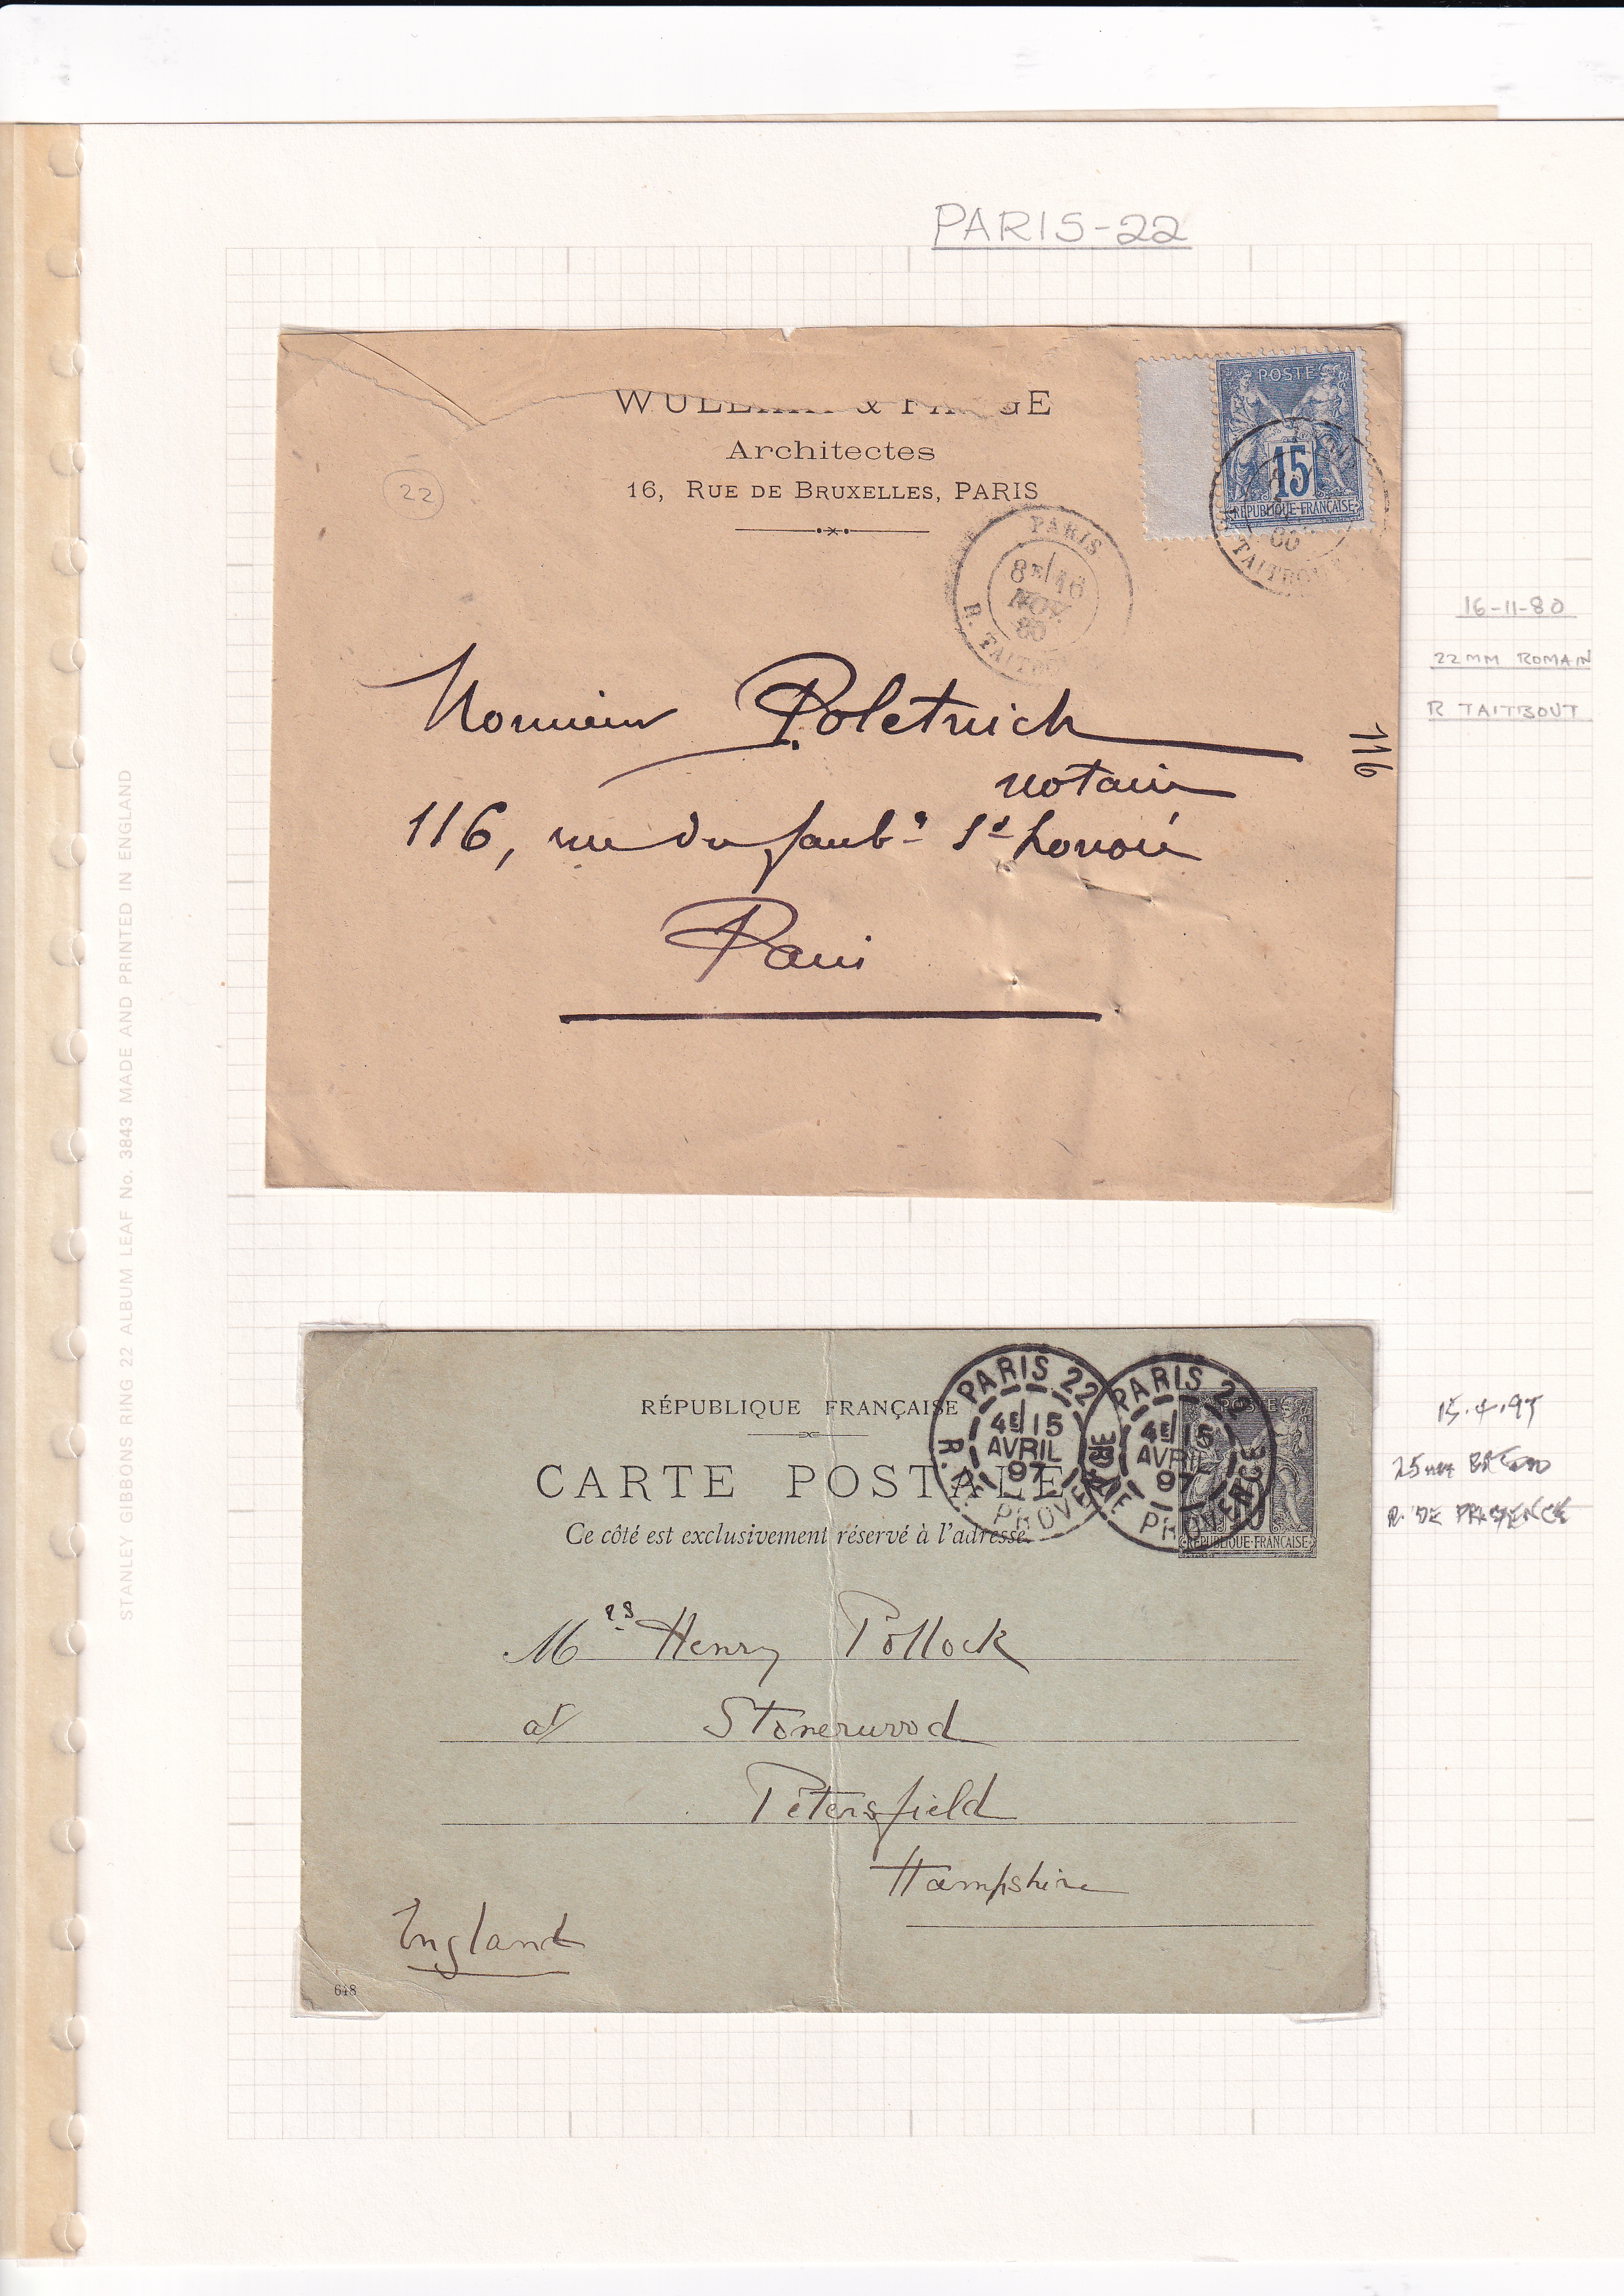 PARIS-22
& GE
Architectes
16, RUE DE BRUXELLES, PARIS
22
POSTES
15
REPUBLIQUE-FRANÇAISE
TAITBOU
PARIS
8E/16
NOV.
80
R. TAITBOU
16-11-80
22MM ROMAIN
R TAITBOUT
Monsieur Poletnich
notaire
116
116, rue du faubg St honoré
Paris
STANLEY GIBBONS RING 22 ALBUM LEAF No. 3843 MADE AND PRINTED IN ENGLAND
RÉPUBLIQUE FRANÇAISE
CARTE POSTALE
Ce côté est exclusivement réservé à l'adresse.
PARIS 22
4E/15
AVRIL
97
R. DE PROVENCE
PARIS 22
4E/15
AVRIL
97
R. DE PROVENCE
POSTES
10
REPUBLIQUE-FRANCAISE
15.4.97
25mm
R. DE PROVENCE
Mrs Henry Pollock
at Stonerwood
Petersfield
Hampshire
England
618